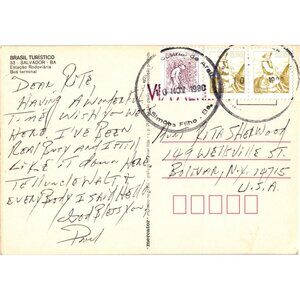 BRASIL TURÍSTICO
53 - SALVADOR - BA
Estação Rodoviária
Bus terminal
DEAR RITE
HAVING A WONDERFUL
TIME! WISH YOU WERE
HERE. I'VE BEEN
REAL BUSY AND I STILL
LIKE IT DOWN HERE.
TELL UNCLE WALT &
EVERYBODY I SAID HELLO
God Bless You
Paul
mercator
NOV 1980
Simões Filho - Ba
MISS RITA SHERWOOD
149 WELLSVILLE ST.
BOLIVAR, N.Y. 14715
U.S.A.